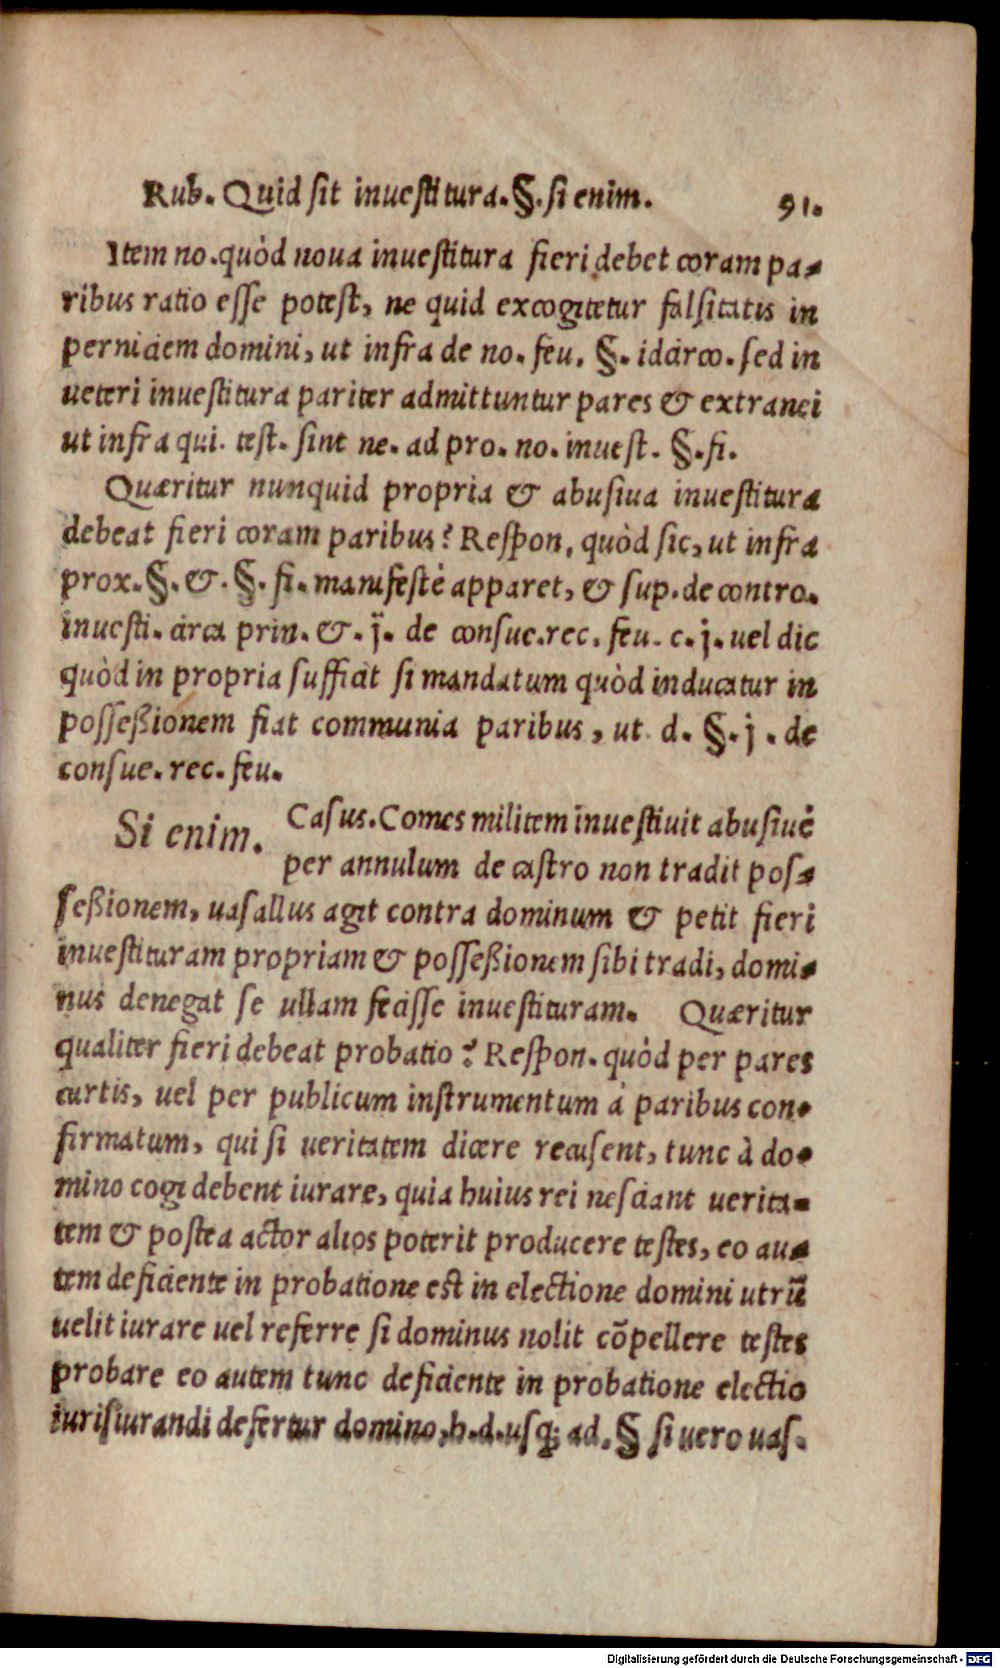 Rub. Quid sit inuestitura. §. si enim. 91.
Item no. quòd noua inuestitura fieri debet coram pa-
ribus ratio esse potest, ne quid excogitetur falsitatis in
perniciem domini, ut infra de no. feu. §. idcirco. sed in
ueteri inuestitura pariter admittuntur pares & extranei
ut infra qui. test. sint ne. ad pro. no. inuest. §. fi.
Quæritur nunquid propria & abusiua inuestitura
debeat fieri coram paribus? Respon. quòd sic, ut infra
prox. §. &. §. fi. manifestè apparet, & sup. de contro.
inuesti. circa prin. &. j. de consue. rec. feu. c. j. uel dic
quòd in propria sufficit si mandatum quòd inducatur in
possessionem fiat communia paribus, ut d. §. j. de
consue. rec. feu.
Si enim. Casus. Comes militem inuestiuit abusiuè
per annulum de castro non tradit pos-
sessionem, uasallus agit contra dominum & petit fieri
inuestituram propriam & possessionem sibi tradi, domi-
nus denegat se ullam fecisse inuestituram. Quæritur
qualiter fieri debeat probatio? Respon. quòd per pares
curtis, uel per publicum instrumentum à paribus con-
firmatum, qui si ueritatem dicere recusent, tunc à do-
mino cogi debent iurare, quia huius rei nesciant uerita-
tem & postea actor alios poterit producere testes, eo au-
tem deficiente in probatione est in electione domini utrũ
uelit iurare uel referre si dominus nolit cõpellere testes
probare eo autem tunc deficiente in probatione electio
iurisiurandi defertur domino, h. d. usq; ad. § si uero uas.
Digitalisierung gefördert durch die Deutsche Forschungsgemeinschaft - DFG